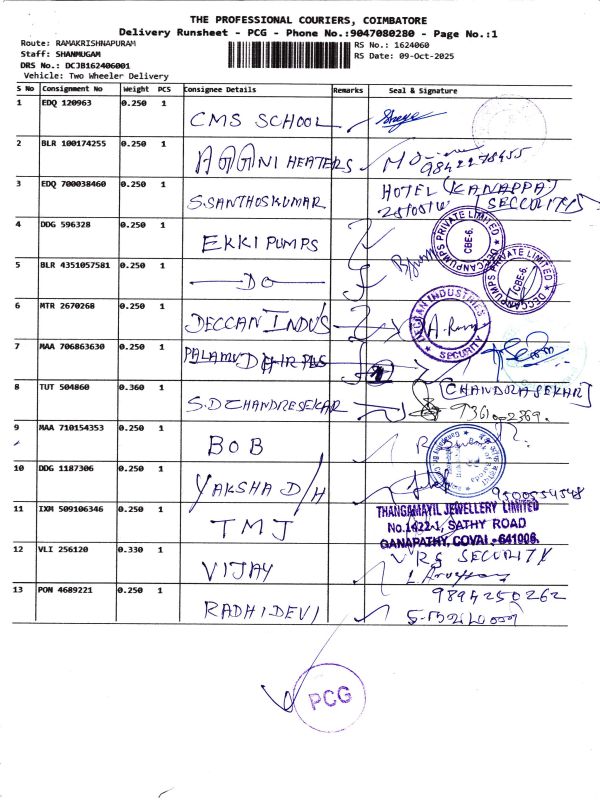 THE PROFESSIONAL COURIERS, COIMBATORE
Delivery Runsheet - PCG - Phone No.:9047080280 - Page No.:1
Route: RAMAKRISHNAPURAM
Staff: SHANMUGAM
DRS No.: DCJB162406001
Vehicle: Two Wheeler Delivery
RS No.: 1624060
RS Date: 09-Oct-2025
S No Consignment No Weight PCS Consignee Details Remarks Seal & Signature
1 EDQ 120963 0.250 1 CMS SCHOOL
2 BLR 100174255 0.250 1 AGGNI HEATERS 9842278455
3 EDQ 700038460 0.250 1 S.SANTHOSKUMAR HOTEL (KANAPPA)
[SECCURITY]
4 DDG 596328 0.250 1 EKKI PUMPS
DECCAN PUMPS PRIVATE LIMITED CBE-6.
5 BLR 4351057581 0.250 1 DO
DECCAN PUMPS PRIVATE LIMITED CBE-6.
6 MTR 2670268 0.250 1 DECCAN INDU'S
DECCAN INDUSTRIES SECURITY
7 MAA 706863630 0.250 1
8 TUT 504860 0.360 1 S.D CHANDRESEKAR [CHANDRASEKAR]
9 MAA 710154353 0.250 1 BOB
10 DDG 1187306 0.250 1 YAKSHA D/H 9500554548
11 IXM 509106346 0.250 1 TMJ
THANGAMAYIL JEWELLERY LIMITED
No.1422-1, SATHY ROAD
GANAPATHY, COVAI - 641006.
12 VLI 256120 0.330 1 VIJAY RS SECURITY
13 PON 4689221 0.250 1 RADHIDEVI 9894250262
PCG